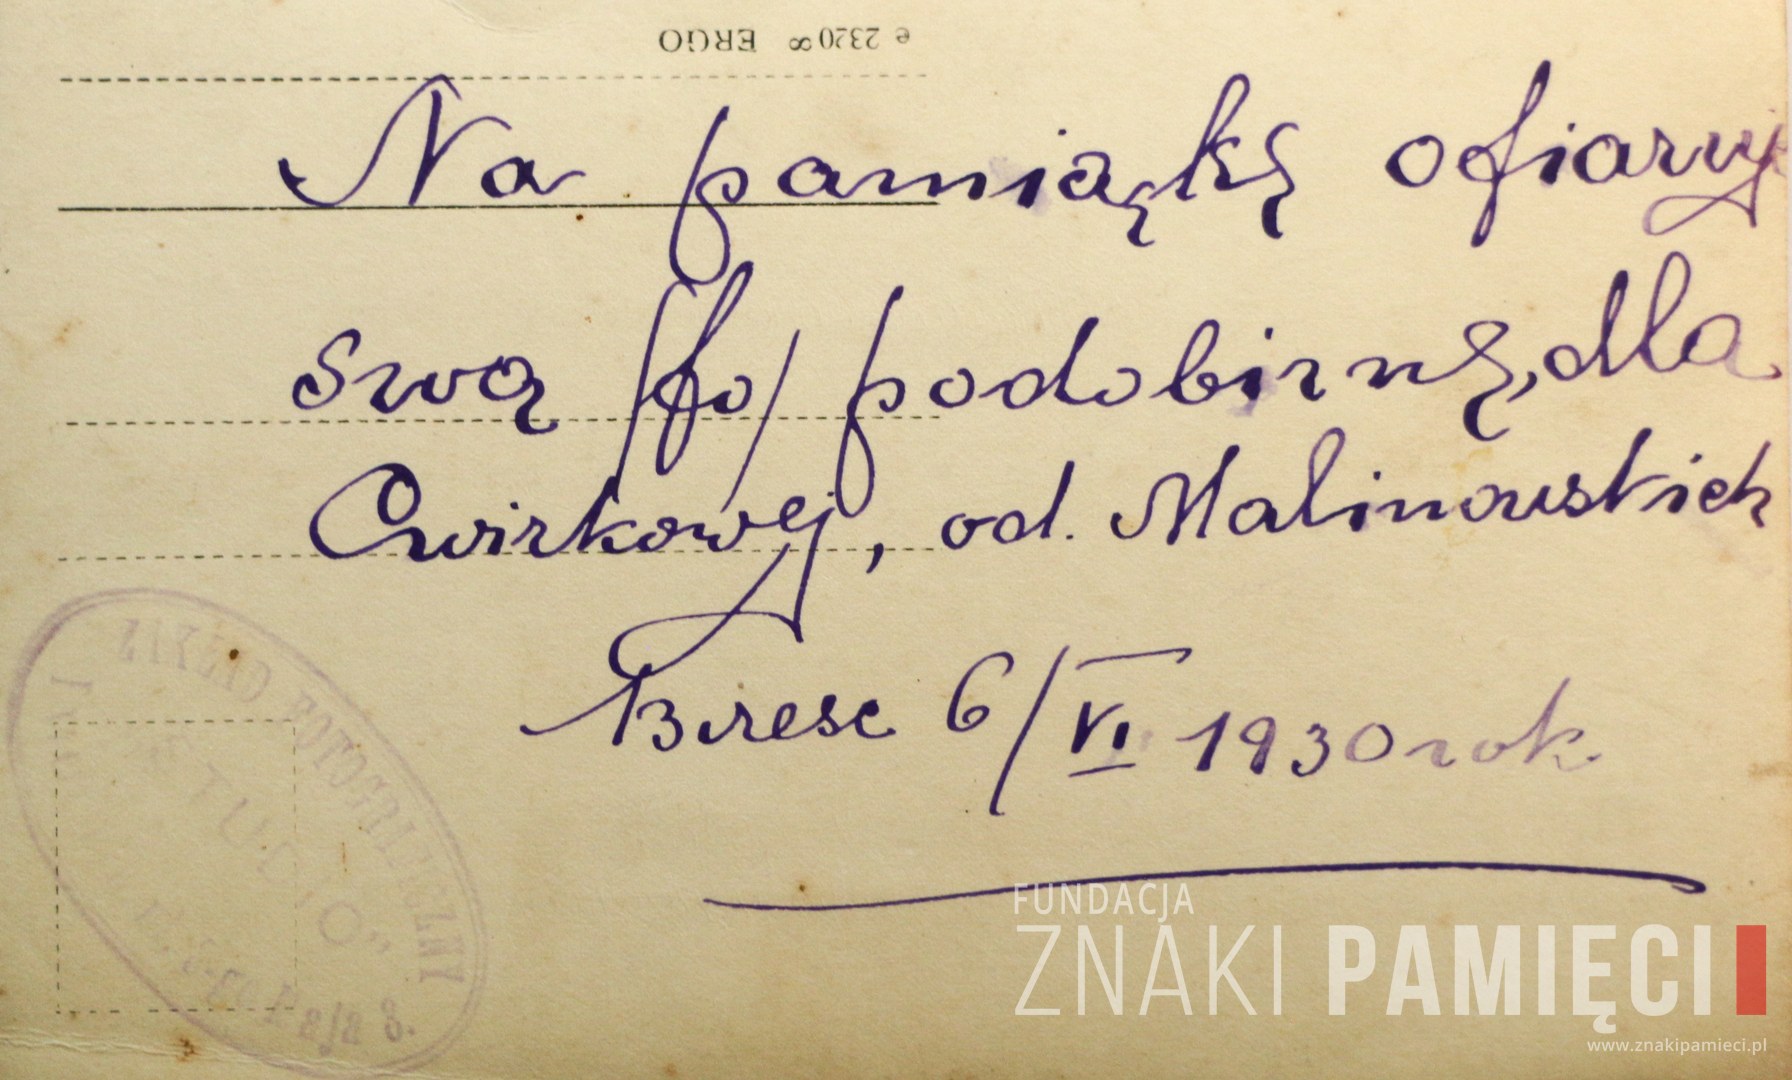 e 2320 ∞ ERGO
Na pamiąkę ofiaruję
swą /fo/ podobirnę, dla
Cwirkowej, od. Malinowskich
Bresc 6/VI 1930 rok.
ZAKŁAD FOTOGRAFICZNY
"STUDIO"
Maja 3.
FUNDACJA
ZNAKI PAMIĘCI
www.znakipamieci.pl